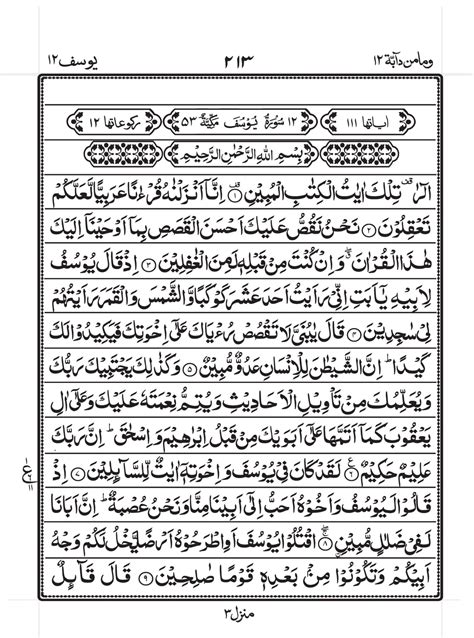 ومامن دآبة ۱۲ ۲۱۳ یوسف ۱۲
اٰیاتها ۱۱۱ ۱۲ سُوْرَةُ یُوْسُفَ مَكِّیَّةٌ ۵۳ رکوعاتها ۱۲
بِسْمِ اللّٰهِ الرَّحْمٰنِ الرَّحِیْمِ
الٓرٰ تِلْكَ اٰیٰتُ الْكِتٰبِ الْمُبِیْنِ ۱ اِنَّاۤ اَنْزَلْنٰهُ قُرْءٰنًا عَرَبِیًّا لَّعَلَّكُمْ
تَعْقِلُوْنَ ۲ نَحْنُ نَقُصُّ عَلَیْكَ اَحْسَنَ الْقَصَصِ بِمَاۤ اَوْحَیْنَاۤ اِلَیْكَ
هٰذَا الْقُرْاٰنَ وَ اِنْ كُنْتَ مِنْ قَبْلِهٖ لَمِنَ الْغٰفِلِیْنَ ۳ اِذْ قَالَ یُوْسُفُ
لِاَبِیْهِ یٰۤاَبَتِ اِنِّیْ رَاَیْتُ اَحَدَ عَشَرَ كَوْكَبًا وَّ الشَّمْسَ وَ الْقَمَرَ رَاَیْتُهُمْ
لِیْ سٰجِدِیْنَ ۴ قَالَ یٰبُنَیَّ لَا تَقْصُصْ رُءْیَاكَ عَلٰۤی اِخْوَتِكَ فَیَكِیْدُوْا لَكَ
كَیْدًا ؕ اِنَّ الشَّیْطٰنَ لِلْاِنْسَانِ عَدُوٌّ مُّبِیْنٌ ۵ وَ كَذٰلِكَ یَجْتَبِیْكَ رَبُّكَ
وَ یُعَلِّمُكَ مِنْ تَاْوِیْلِ الْاَحَادِیْثِ وَ یُتِمُّ نِعْمَتَهٗ عَلَیْكَ وَ عَلٰۤی اٰلِ
یَعْقُوْبَ كَمَاۤ اَتَمَّهَا عَلٰۤی اَبَوَیْكَ مِنْ قَبْلُ اِبْرٰهِیْمَ وَ اِسْحٰقَ ؕ اِنَّ رَبَّكَ
عَلِیْمٌ حَكِیْمٌ ۶ لَقَدْ كَانَ فِیْ یُوْسُفَ وَ اِخْوَتِهٖۤ اٰیٰتٌ لِّلسَّآىِٕلِیْنَ ۷ اِذْ
قَالُوْا لَیُوْسُفُ وَ اَخُوْهُ اَحَبُّ اِلٰۤی اَبِیْنَا مِنَّا وَ نَحْنُ عُصْبَةٌ ؕ اِنَّ اَبَانَا
لَفِیْ ضَلٰلٍ مُّبِیْنِ ۸ اقْتُلُوْا یُوْسُفَ اَوِ اطْرَحُوْهُ اَرْضًا یَّخْلُ لَكُمْ وَجْهُ
اَبِیْكُمْ وَ تَكُوْنُوْا مِنْۢ بَعْدِهٖ قَوْمًا صٰلِحِیْنَ ۹ قَالَ قَآىِٕلٌ
منزل ۳